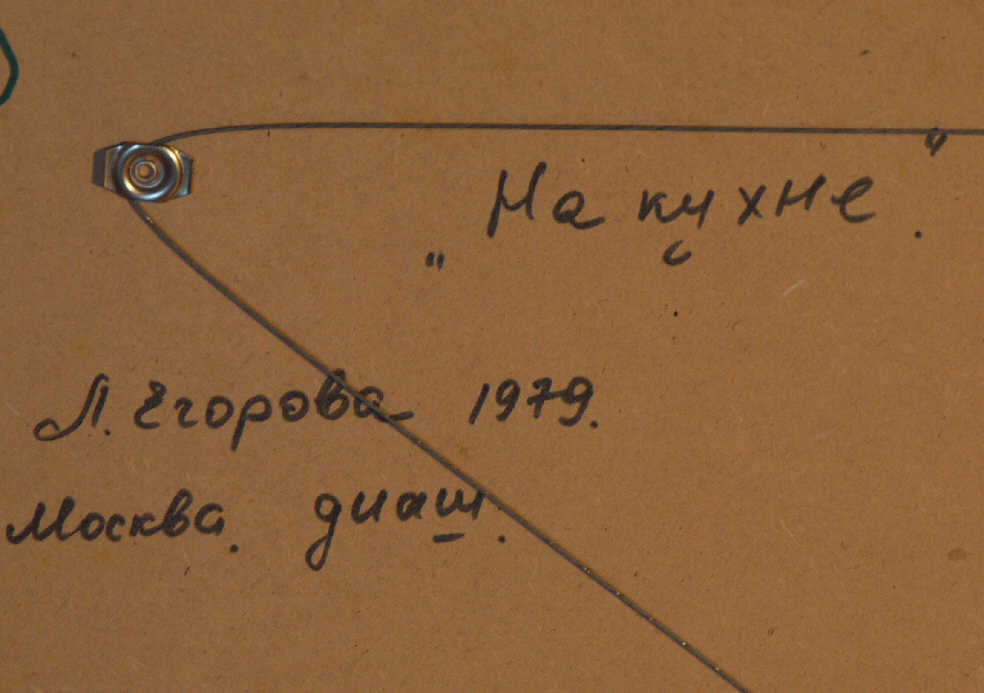 "На кухне".
Л. Егорова 1979.
Москва. диаш.